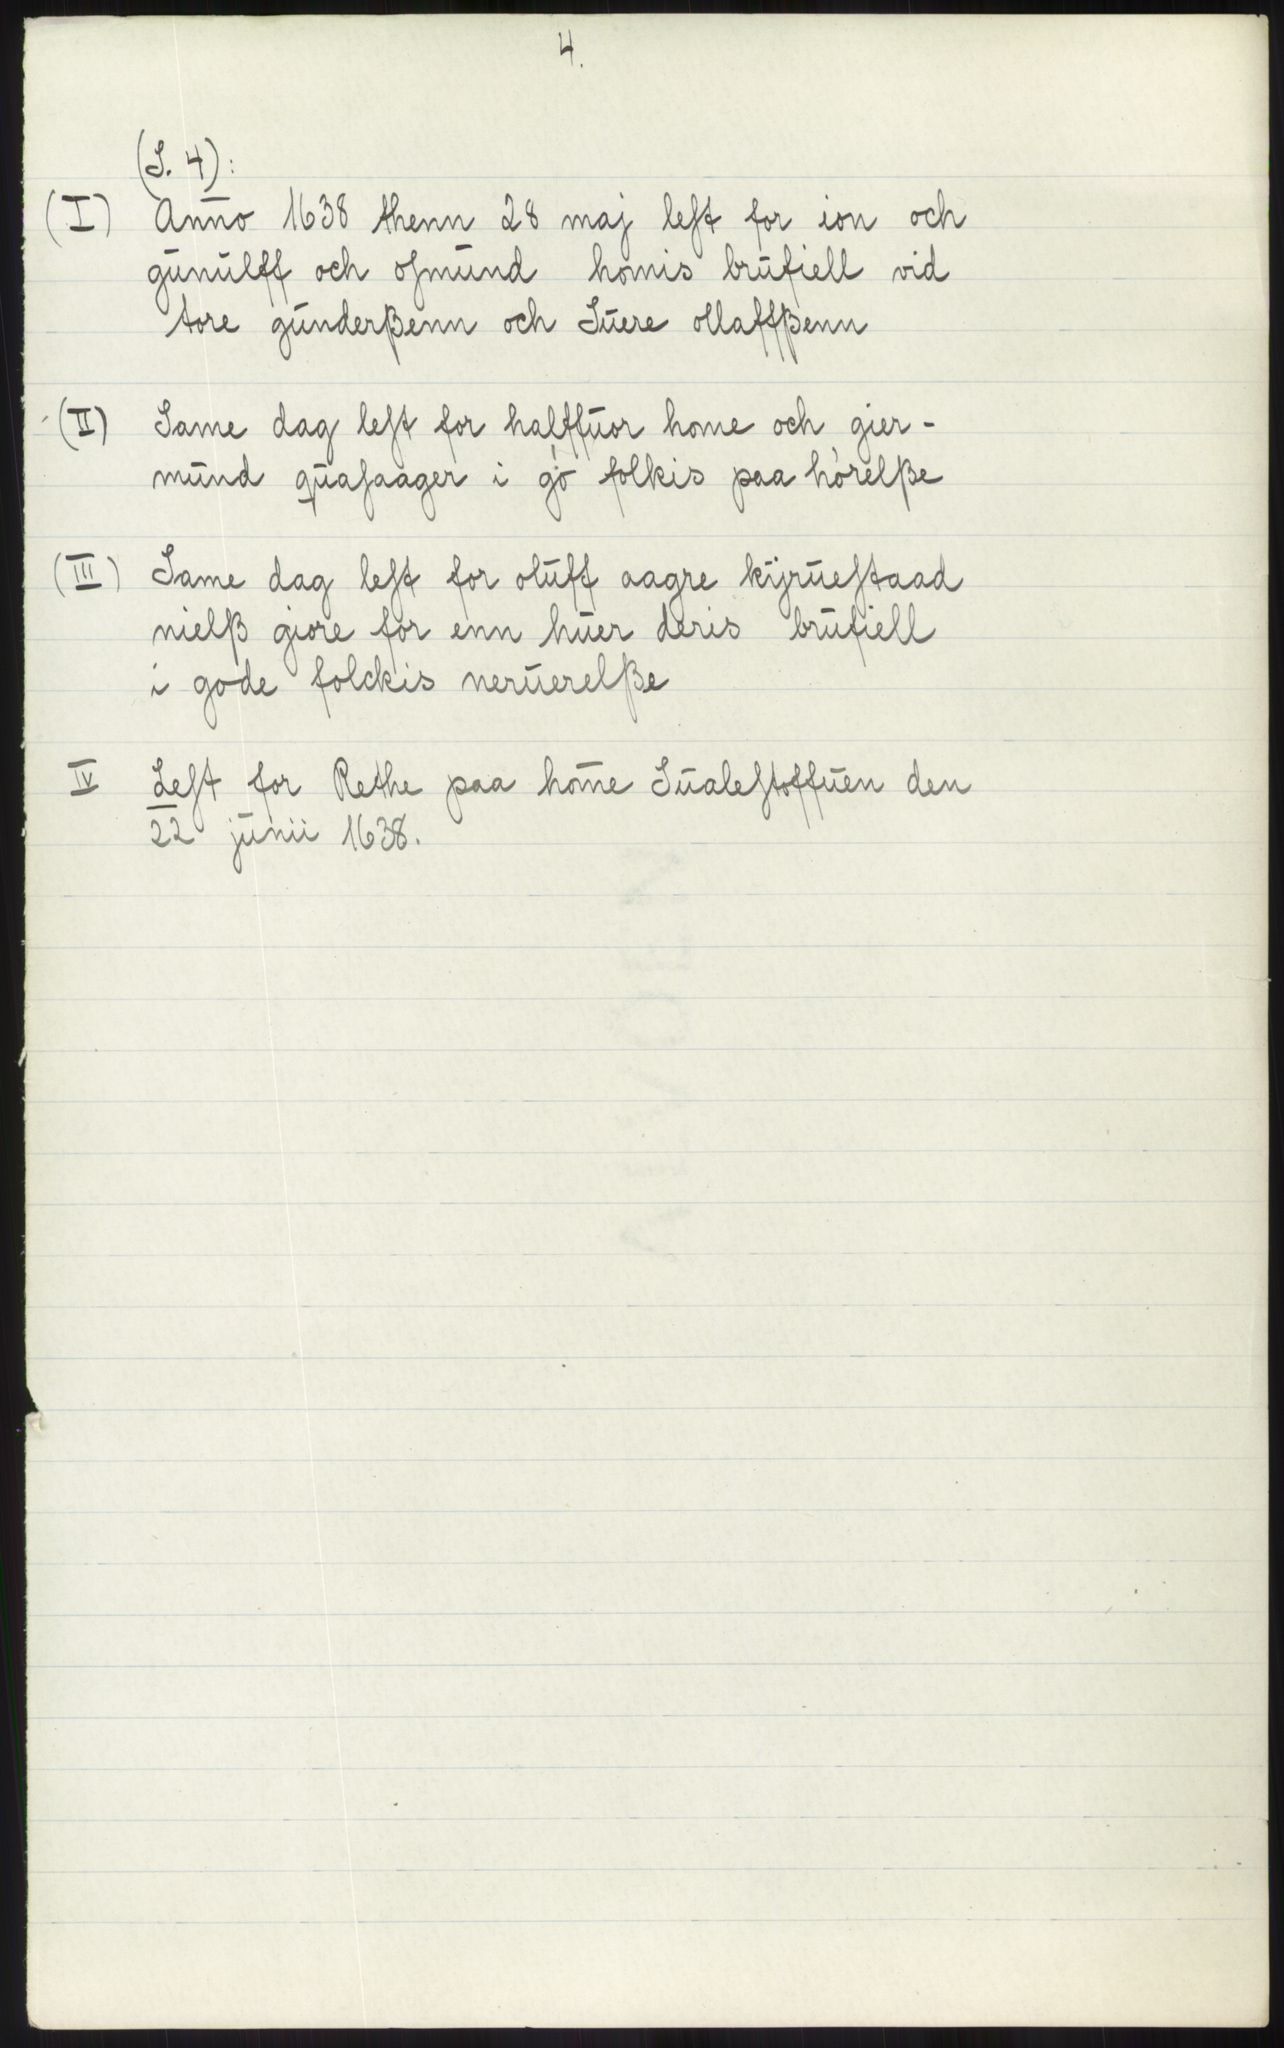 4.
(S. 4):
(I) Anno 1638 thenn 28 maj lest for ion och
gunulff och osmund homis brufiell vid
tore gunderßenn och Suere ollaffßenn
(II) Same dag lest for halffuor home och gier-
mund quasaager i go folkis paa hórelße
(III) Same dag lest for oluff aagre kijruestaad
nielß giore for enn huer deris brufiell
i gode folckis neruerelße
IV Lest for Rethe paa home Sualestoffuen den
22 junii 1638.